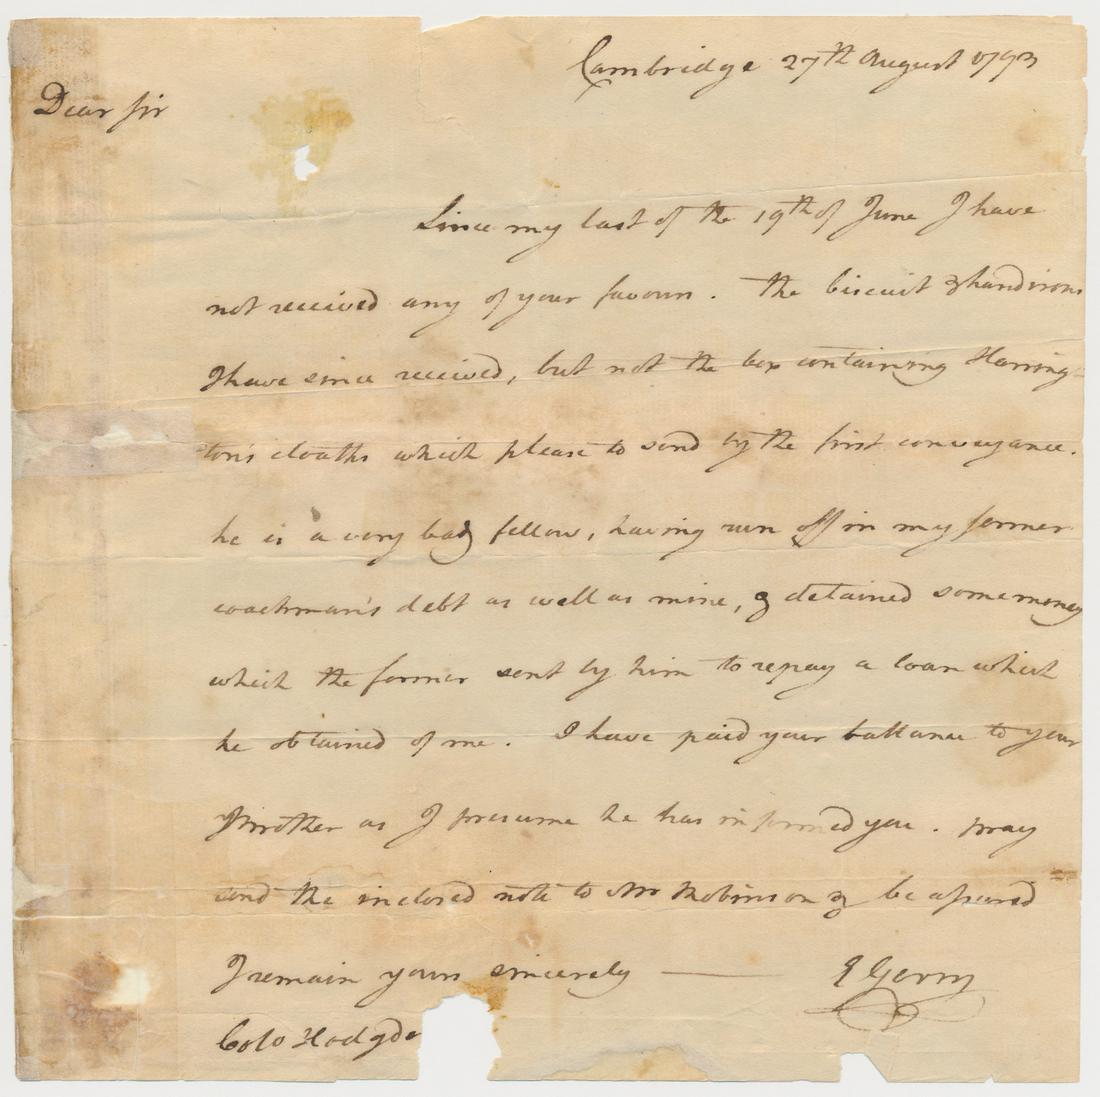 Cambridge 27th August 1793
Dear Sir
Since my last of the 19th of June I have
not received any of your favours. The biscuit & handirons
I have since received, but not the box containing Harring-
ton's cloaths which please to send by the first conveyance.
he is a very bad fellow, having run off in my former
coachman's debt as well as mine, & detained some money
which the former sent by him to repay a loan which
he obtained of me. I have paid your ballance to your
Brother as I presume he has informed you. pray
send the inclosed note to Mr Robinson & be assured
I remain yours sincerely — E Gerry
Colo Hodgdo